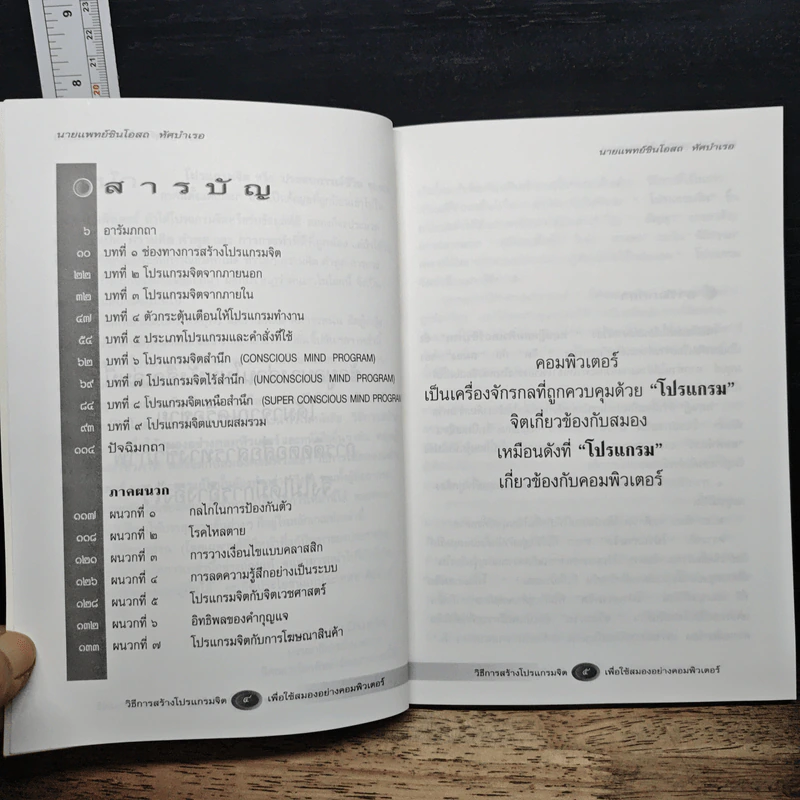 นายแพทย์ชินโอสถ หัศบำเรอ
สารบัญ
๖ อารัมภกถา
๑๐ บทที่ ๑ ช่องทางการสร้างโปรแกรมจิต
๒๒ บทที่ ๒ โปรแกรมจิตจากภายนอก
๓๒ บทที่ ๓ โปรแกรมจิตจากภายใน
๔๗ บทที่ ๔ ตัวกระตุ้นเตือนให้โปรแกรมทำงาน
๕๔ บทที่ ๕ ประเภทโปรแกรมและคำสั่งที่ใช้
๖๒ บทที่ ๖ โปรแกรมจิตสำนึก (CONSCIOUS MIND PROGRAM)
๖๙ บทที่ ๗ โปรแกรมจิตไร้สำนึก (UNCONSCIOUS MIND PROGRAM)
๘๔ บทที่ ๘ โปรแกรมจิตเหนือสำนึก (SUPER CONSCIOUS MIND PROGRAM
๙๓ บทที่ ๙ โปรแกรมจิตแบบผสมรวม
๑๑๔ ปัจฉิมกถา
ภาคผนวก
๑๑๗ ผนวกที่ ๑ กลไกในการป้องกันตัว
๑๑๘ ผนวกที่ ๒ โรคไหลตาย
๑๒๑ ผนวกที่ ๓ การวางเงื่อนไขแบบคลาสสิก
๑๒๖ ผนวกที่ ๔ การลดความรู้สึกอย่างเป็นระบบ
๑๒๘ ผนวกที่ ๕ โปรแกรมจิตกับจิตเวชศาสตร์
๑๓๒ ผนวกที่ ๖ อิทธิพลของคำกุญแจ
๑๓๓ ผนวกที่ ๗ โปรแกรมจิตกับการโฆษณาสินค้า
วิธีการสร้างโปรแกรมจิต ๔ เพื่อใช้สมองอย่างคอมพิวเตอร์
นายแพทย์ชินโอสถ หัศบำเรอ
คอมพิวเตอร์
เป็นเครื่องจักรกลที่ถูกควบคุมด้วย “โปรแกรม”
จิตเกี่ยวข้องกับสมอง
เหมือนดังที่ “โปรแกรม”
เกี่ยวข้องกับคอมพิวเตอร์
วิธีการสร้างโปรแกรมจิต ๕ เพื่อใช้สมองอย่างคอมพิวเตอร์
9
8
23
22
21
20